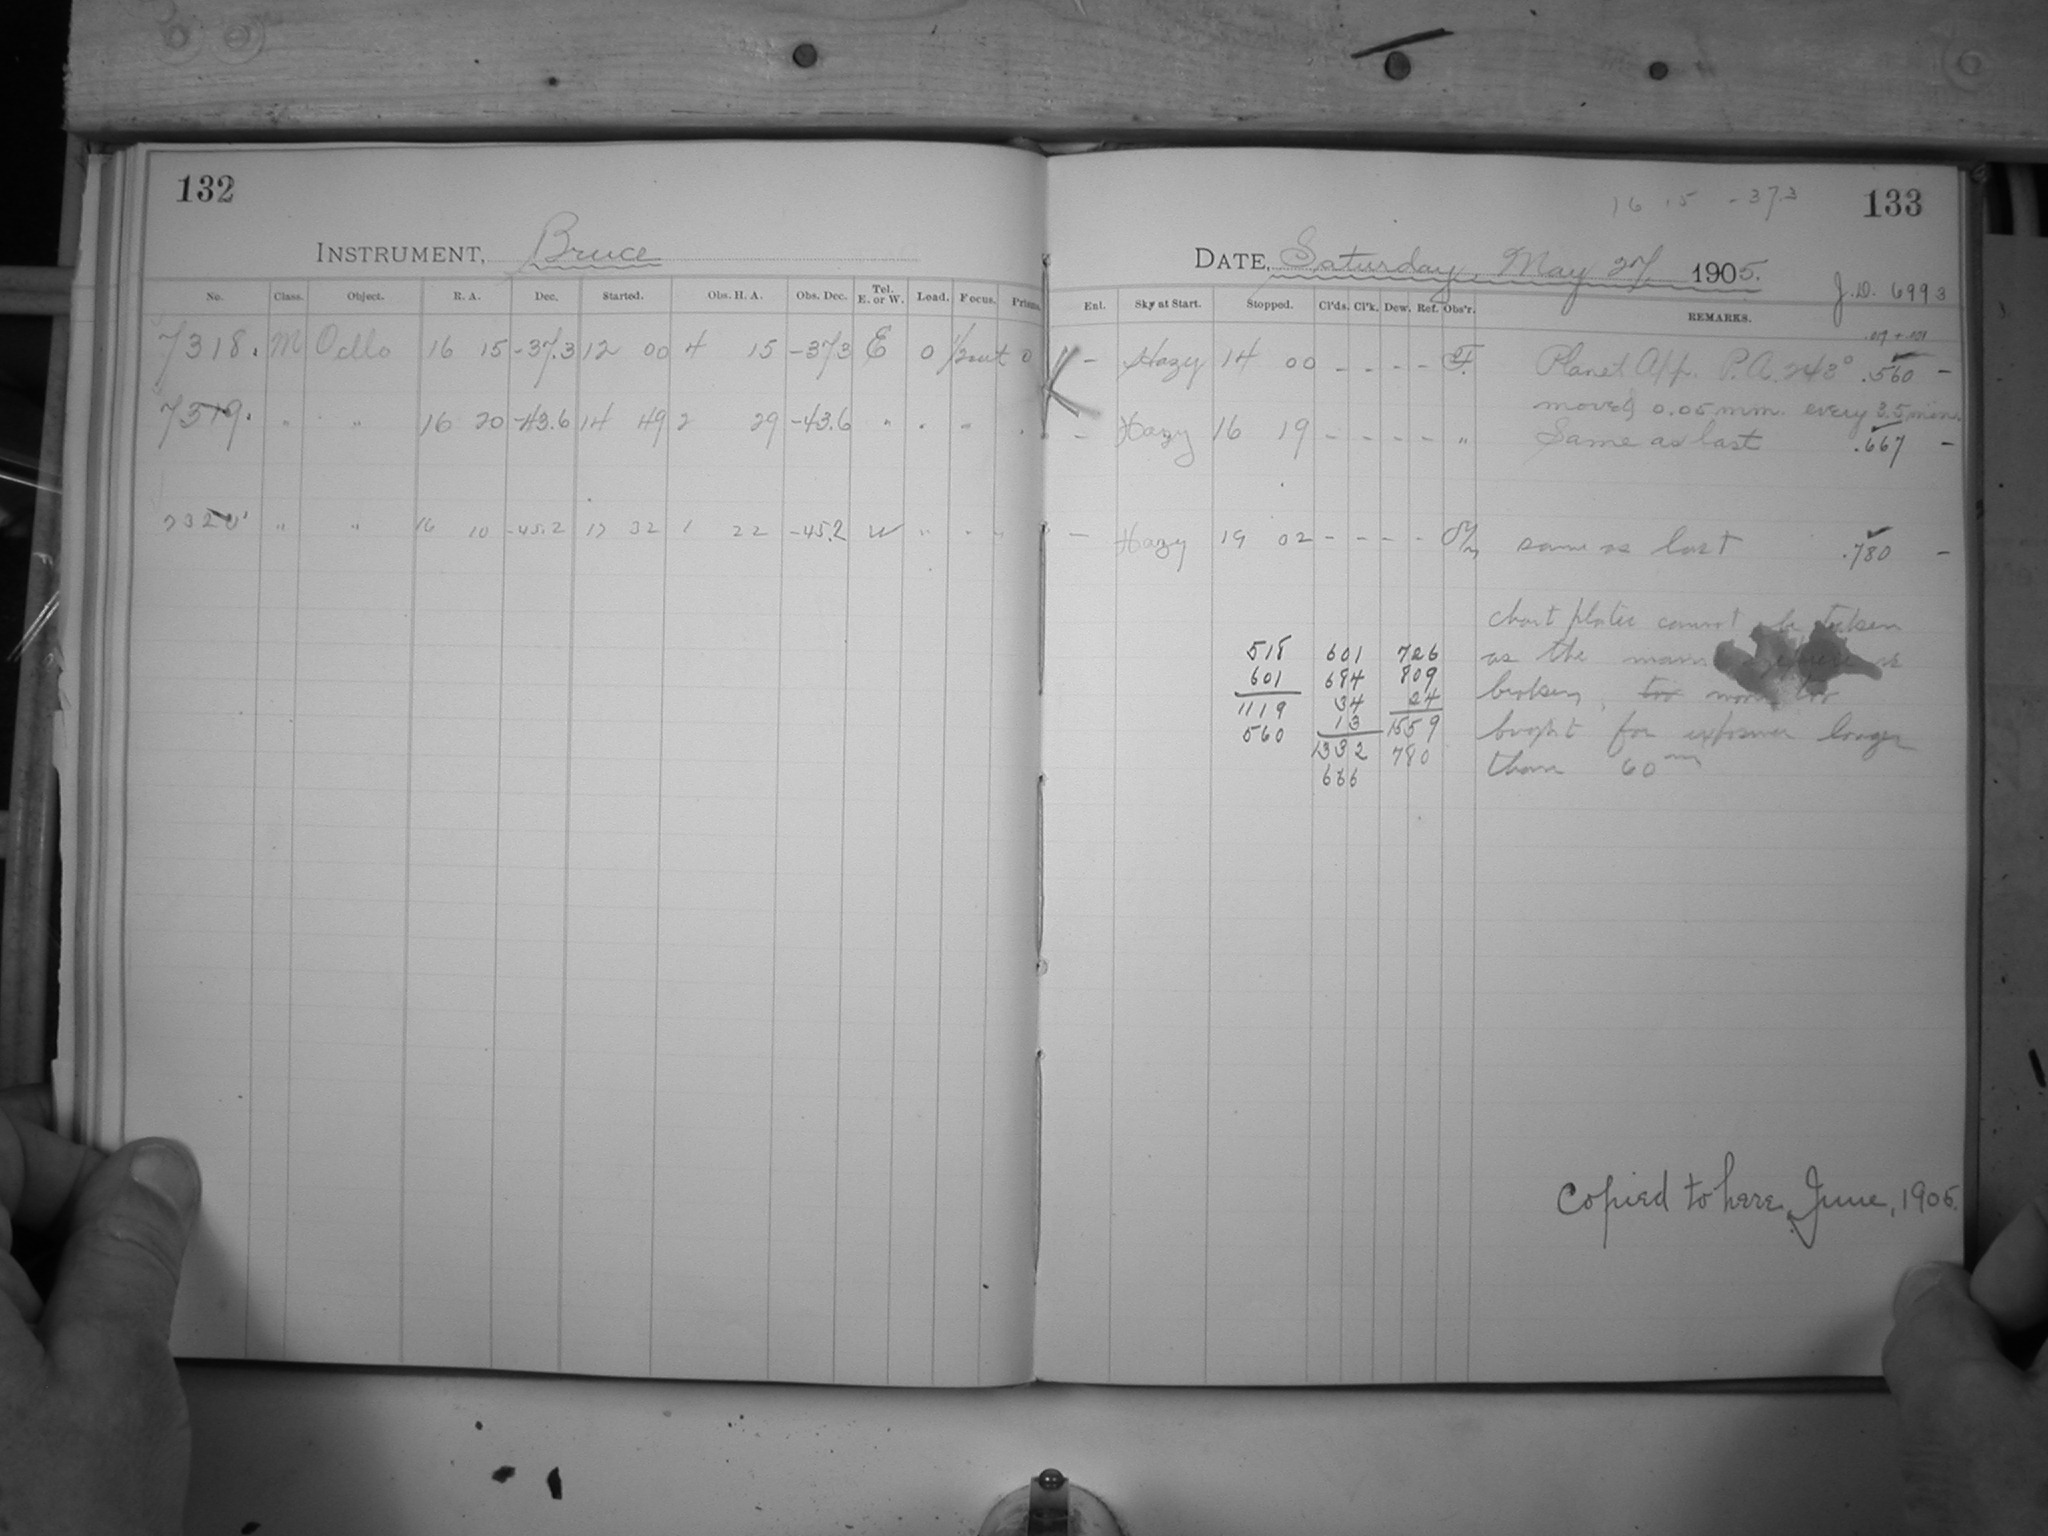 132
INSTRUMENT, Bruce
No. Class. Object. R. A. Dec. Started. Obs. H. A. Obs. Dec. Tel. E. or W. Lead. Focus. Prism.
7318. M Ocllo 16 15 -37.3 12 00 4 15 -37.3 E 0 0
7319. " " 16 20 -43.6 14 49 2 29 -43.6 " " " "
7320 " " 16 10 -45.2 17 32 1 22 -45.2 W " " "
16 15 -37.3
133
DATE, Saturday, May 27, 1905.
J.D. 6993
Ent. Sky at Start. Stopped. Cl'ds. Cl'k. Dew. Ref. Obs'r. REMARKS.
- Hazy 14 00 - - - - F. Planet App. P.A. 243° .560 -
moved 0.05 mm. every 3.5 mins
- Hazy 16 19 - - - - " Same as last .667 -
- Hazy 19 02 - - - - same as last .780 -
chart plates cannot be taken
as the
broken,
for exposures longer
than 60m
518 601 726
601 684 809
1119 34 24
560 13 1559
1332 780
666
Copied to here, June, 1905.